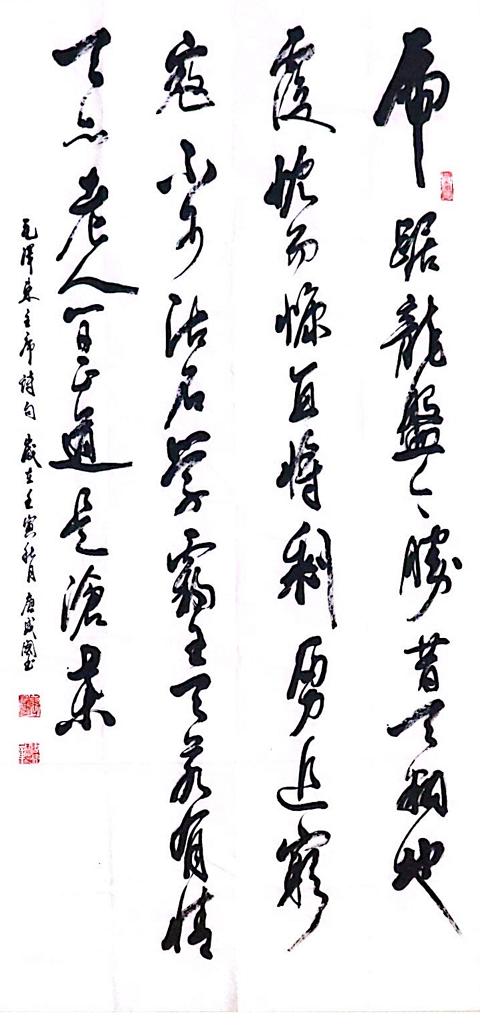 虎踞龍盤今勝昔天翻地
覆慨而慷宜將剩勇追窮
寇不可沽名學霸王天若有情
天亦老人間正道是滄桑
毛澤東主席詩句 歲在壬寅秋月 唐